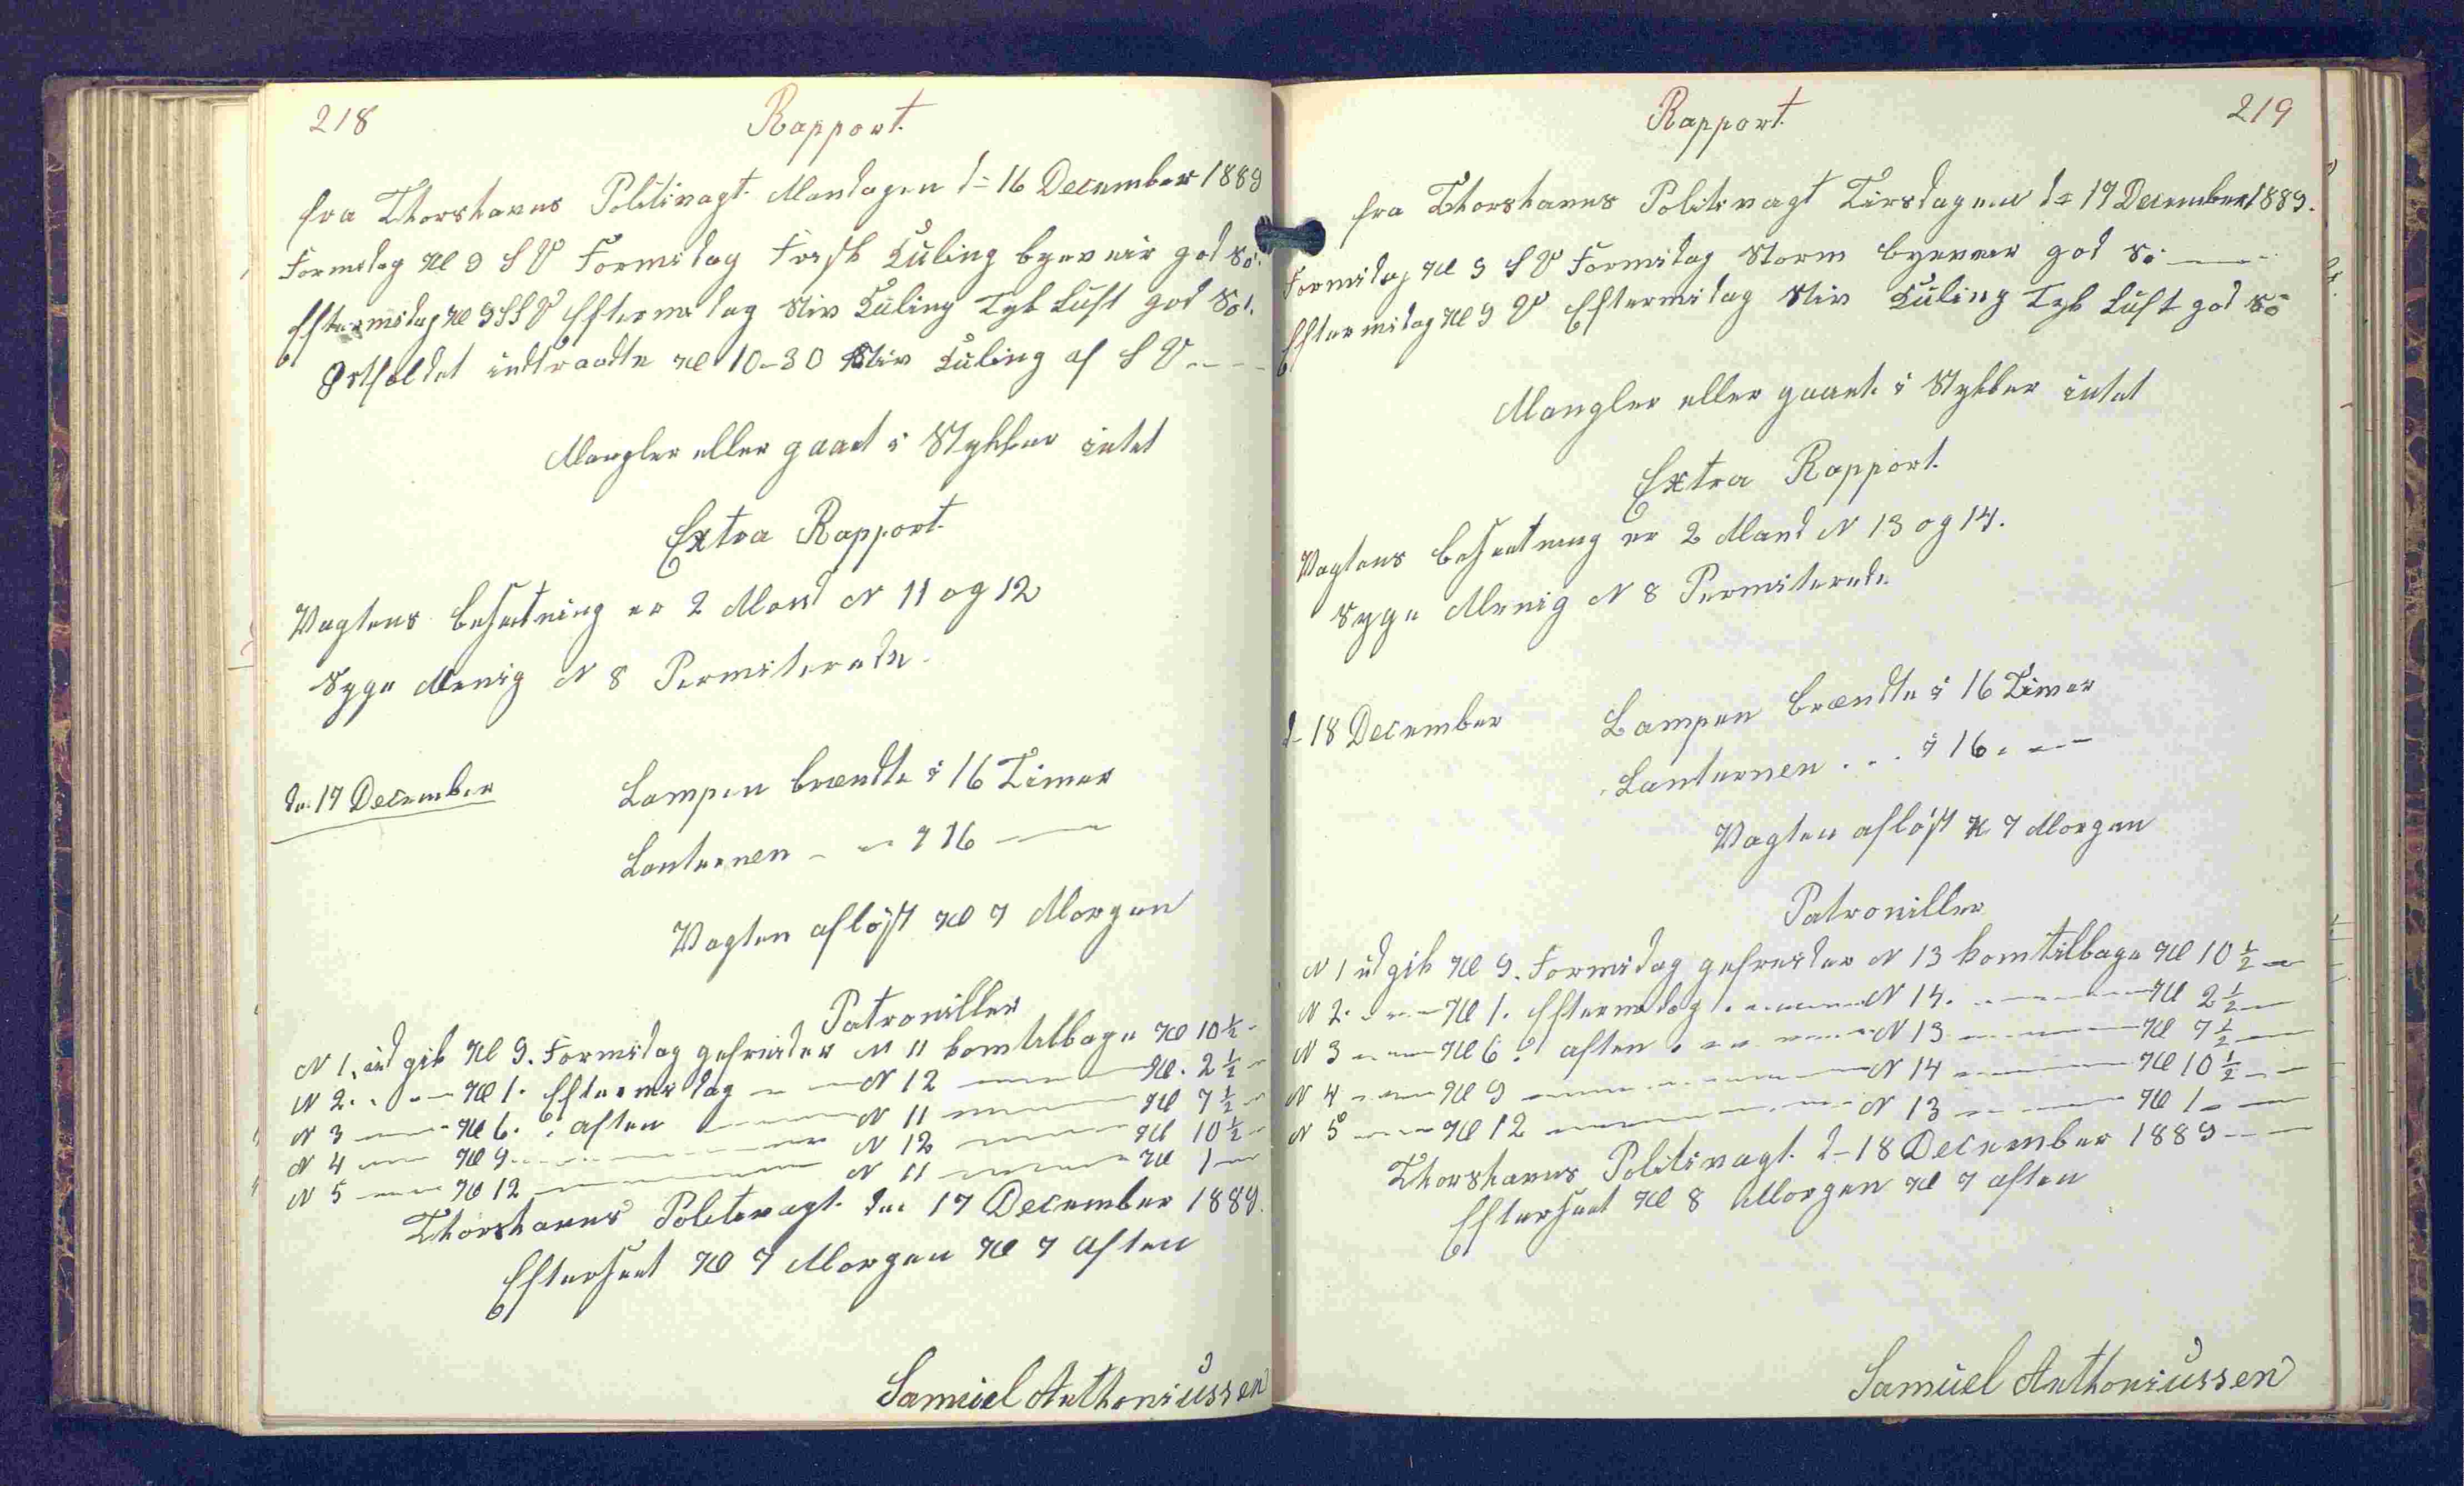 218
Rapport.
fra Thorshavns Politivagt. Mandagen d= 16 December 1889
Formidag Kl 9 S V Formidag Frisk Kuling byeveir god Sø.
Eftermidag Kl 9 S S V Eftermidag Stiv Kuling Tyk Luft god Sø.
Østfaldet indtraadte Kl 10-30 Stiv Kuling af S V
Mangler eller gaaet i Stykker intet
Extra Rapport.
Vagtens besætning er 2 Mand N 11 og 12
Syge Menig N 8 Permiterede.
den 17 December
Lampen brændte i 16 Timer
Lanternen - - " i 16 —
Vagten afløst Kl 7 Morgen
Patrouiller
N 1. udgik Kl 9. Formidag gefreider N 11 kom tilbage Kl 10 ½
N 2. - - - Kl 1. Eftermidag - - N 12 — Kl. 2 ½
N 3 — Kl 6. aften — N 11 — Kl 7 ½
N 4 — Kl 9 — N 12 — Kl 10 ½
N 5 — Kl 12 — N 11 — Kl 1 —
Thorshavns Politivagt. den 17 December 1889.
Efterseet Kl 7 Morgen Kl 7 aften
Samuel Anthoniussen
219
Rapport.
fra Thorshavns Politivagt Tirsdagen d= 17 December 1889.
Formidag Kl 9 S V Formidag Storm byeveir god Sø —
Eftermidag Kl 9 V Eftermidag Stiv Kuling Tyk Luft god Sø
Mangler eller gaaet i Stykker intet
Extra Rapport.
Vagtens besætning er 2 Mand N 13 og 14.
Syge Menig N 8 Permiterede
d- 18 December
Lampen brændte i 16 Timer
Lanternen . . . i 16 . — —
Vagten afløst Kl 7 Morgen
Patrouiller
N 1 udgik Kl 9. Formidag gefreider N 13 kom tilbage Kl 10 ½ —
N 2. - - - Kl 1. Eftermidag . — N 14. — Kl 2 ½ —
N 3 — Kl 6 aften . — N 13 — Kl 7 ½ —
N 4 — Kl 9 — N 14 — Kl 10 ½ —
N 5 — Kl 12 — N 13 — Kl 1 —
Thorshavns Politivagt. d- 18 December 1889 —
Efterseet Kl 8 Morgen Kl 7 aften
Samuel Anthoniussen